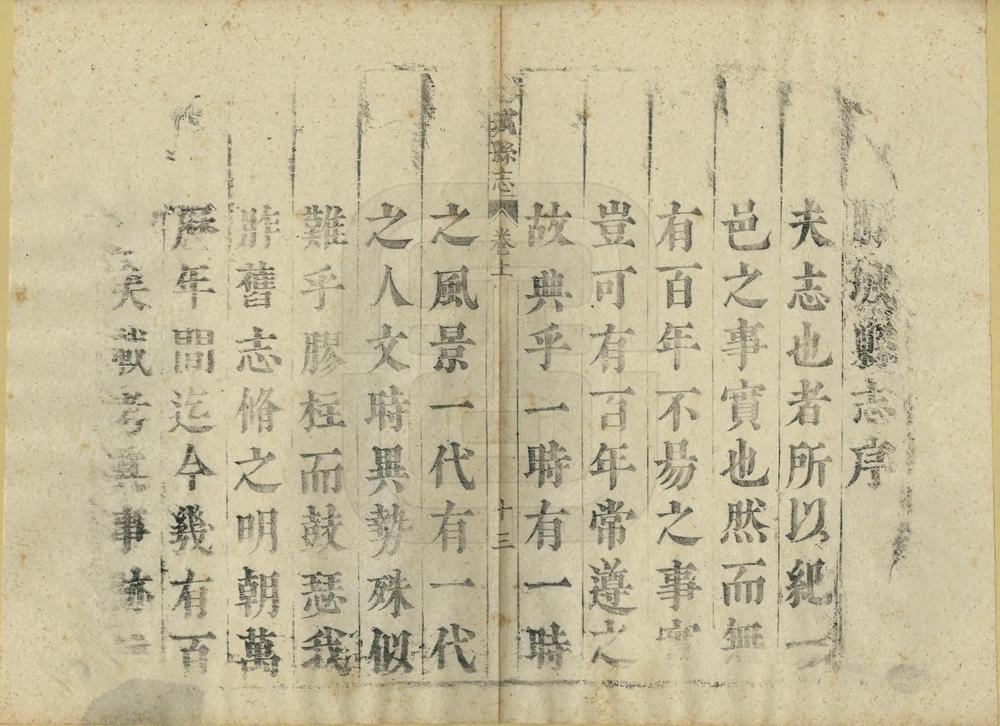 城縣志序
夫志也者所以紀一
邑之事實也然而無
有百年不易之事實
豈可有百年常遵之
故典乎一時有一時
城縣志 卷上 十三
之風景一代有一代
之人文時異勢殊似
難乎膠柱而鼓瑟我
胙舊志脩之明朝萬
歷年間迄今幾有百
矣載考其事